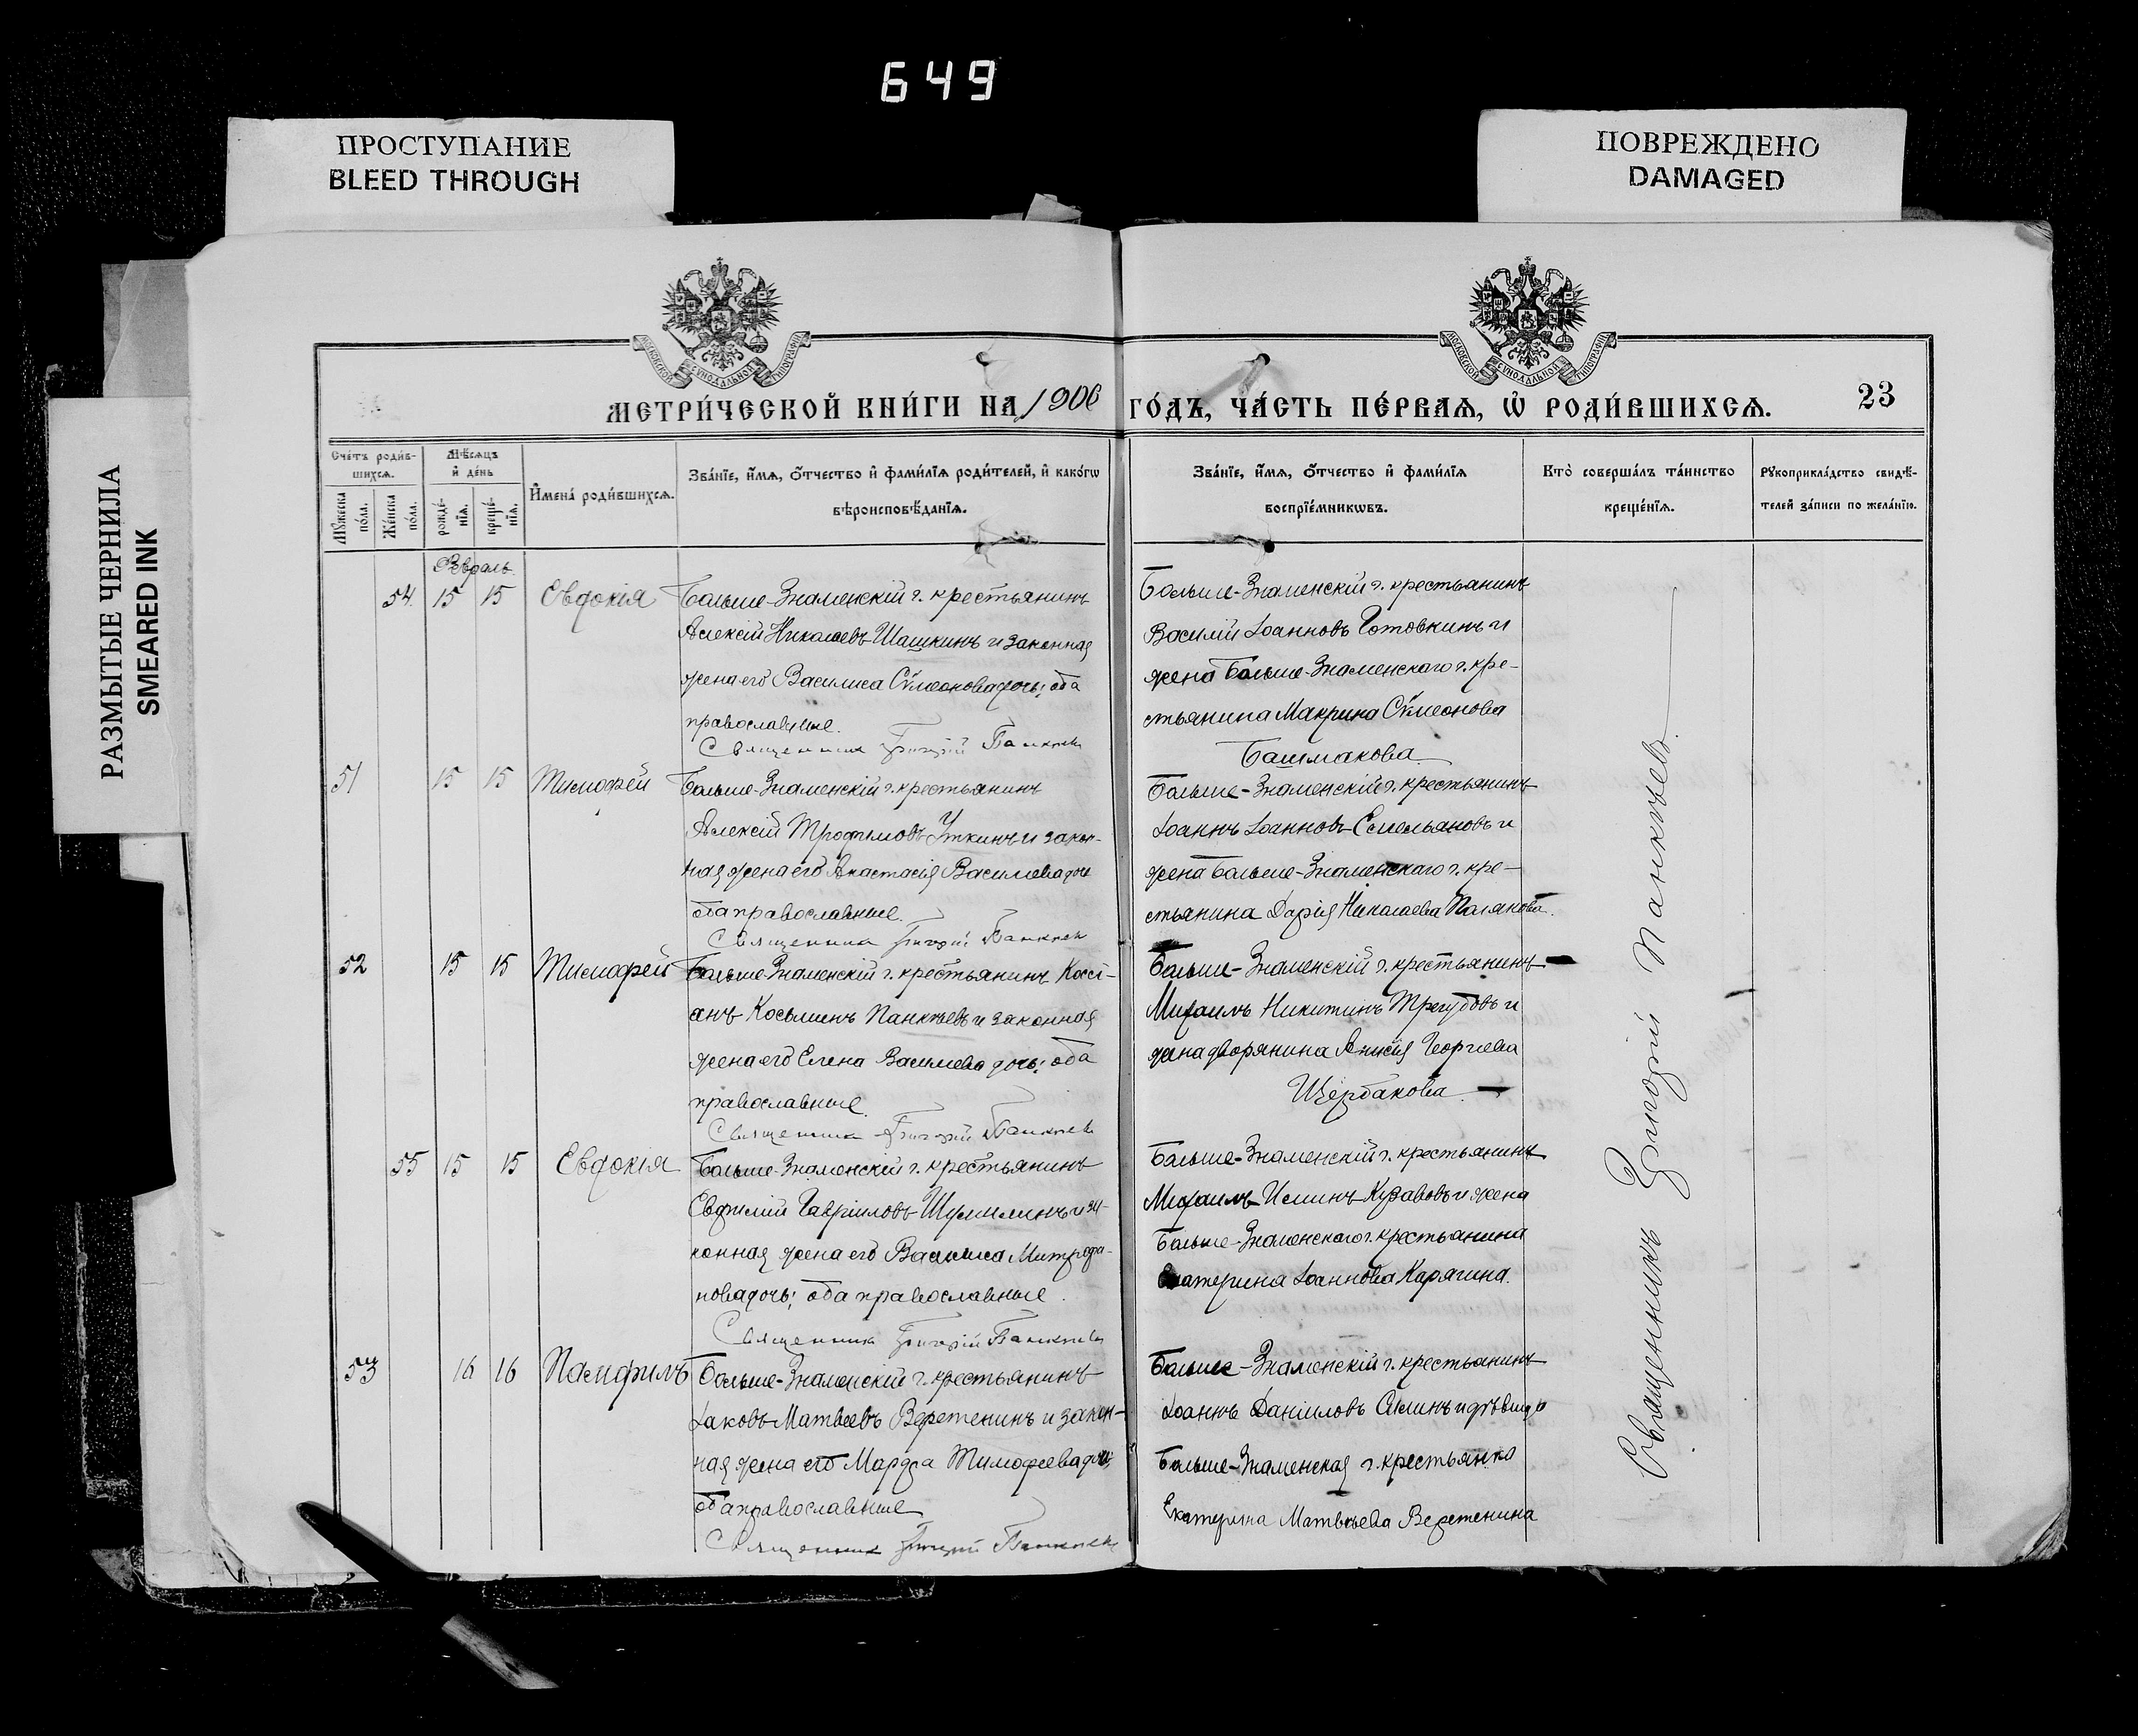 649
ПРОСТУПАНИЕ
BLEED THROUGH
ПОВРЕЖДЕНО
DAMAGED
РАЗМЫТЫЕ ЧЕРНИЛА
SMEARED INK
МОСКОВСКОЙ СѴНОДАЛЬНОЙ ТИПОГРАФІИ
МОСКОВСКОЙ СѴНОДАЛЬНОЙ ТИПОГРАФІИ
МЕТРИ́ЧЕСКОЙ КНИ́ГИ НА 1906 ГО́ДЪ, ЧА́СТЬ ПЕ́РВАѦ, Ѡ҆ РОДИ́ВШИХСѦ.
23
Сче́тъ роди́в-
шихсѧ.
Мѣ́сѧцъ
и҆ де́нь
Мꙋ́жеска
по́ла.
Же́нска
по́ла.
рожде́-
нїѧ.
креще́-
нїѧ.
И҆мена̀ роди́вшихсѧ.
Зва́нїе, и҆́мѧ, ѻ҆́тчество и҆ фами́лїѧ роди́телей, и҆ како́гѡ
вѣроисповѣ́данїѧ.
Зва́нїе, и҆́мѧ, ѻ҆́тчество и҆ фами́лїѧ
воспрїе́мникѡвъ.
Кто̀ соверша́лъ та́инство
креще́нїѧ.
Рꙋкоприкла́дство свидѣ́-
телей за́писи по жела́нїю.
Февраль
54 15 15 Евдокія
Больше-Знаменскій г. крестьянинъ
Алексій Николаевъ Шашкинъ и законная
жена его Василиса Сѵмеонова дочь; оба
православные.
Священникъ Григорій Панкѣевъ
Больше-Знаменскій г. крестьянинъ
Василій Іоанновъ Готовкинъ и
жена Больше-Знаменскаго г. кре-
стьянина Макрина Сѵмеонова
Башмакова
51 15 15 Тимофей
Больше-Знаменскій г. крестьянинъ
Алексій Трофимовъ Уткинъ и закон-
ная жена его Анастасія Васильева дочь
оба православные.
Священникъ Григорій Панкѣевъ
Больше-Знаменскій г. крестьянинъ
Іоаннъ Іоанновъ Емельяновъ и
жена Больше-Знаменскаго г. кре-
стьянина Дарія Николаева Полякова.
52 15 15 Тимофей
Больше-Знаменскій г. крестьянинъ Кассі-
анъ Косьминъ Панкѣевъ и законная
жена его Елена Васильева дочь; оба
православные.
Священникъ Григорій Панкѣевъ
Больше-Знаменскій г. крестьянинъ
Михаилъ Никитинъ Трегубовъ и
жена дворянина Анисія Георгіева
Щербакова
55 15 15 Евдокія
Больше-Знаменскій г. крестьянинъ
Евфимій Гавріиловъ Шумилинъ и за-
конная жена его Василиса Митрофа-
нова дочь; оба православные.
Священникъ Григорій Панкѣевъ
Больше-Знаменскій г. крестьянинъ
Михаилъ Исаинъ и жена
Больше-Знаменскаго г. крестьянина
Екатерина Іоаннова Карягина.
53 16 16 Памфилъ
Больше-Знаменскій г. крестьянинъ
Іаковъ Матвеевъ Веретенинъ и закон-
ная жена его Марфа Тимофеева дочь;
оба православные
Священникъ Григорій Панкѣевъ
Больше-Знаменскій г. крестьянинъ
Іоаннъ Даніиловъ и дѣвица
Больше-Знаменская г. крестьянка
Екатерина Матвѣева Веретенина
Священникъ Григорій Панкѣевъ.